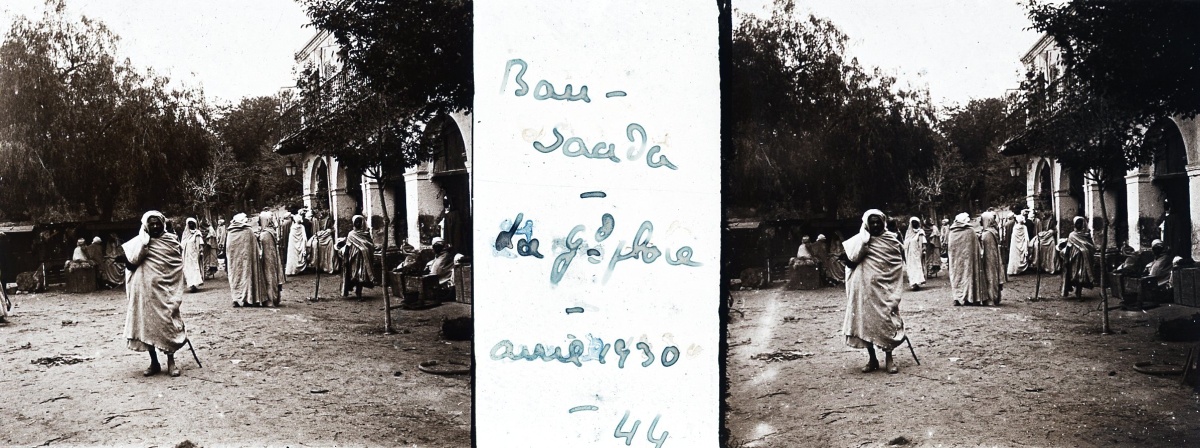 Bou -
saada
-
La Gde place
-
année 1930
-
44